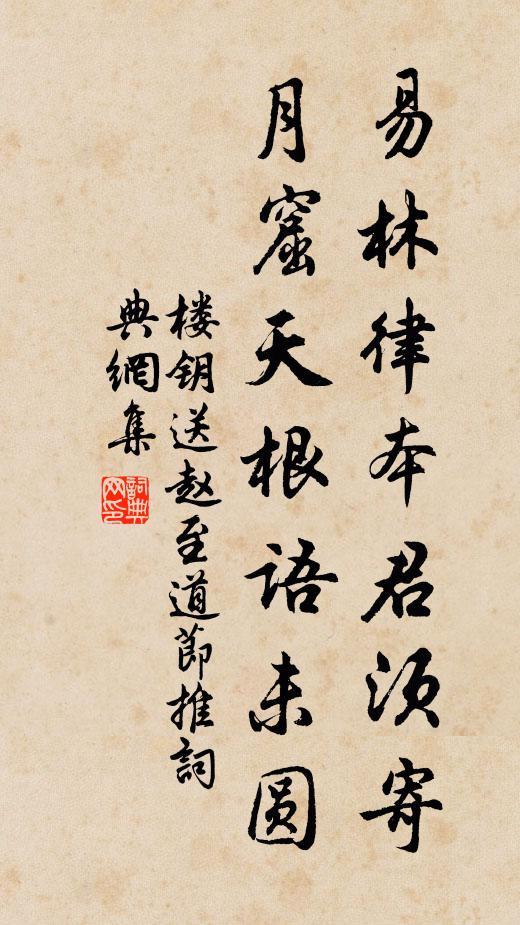 易林律本君须寄
月窟天根语未圆
楼钥送赵至道节推词
典網集
詞典網印